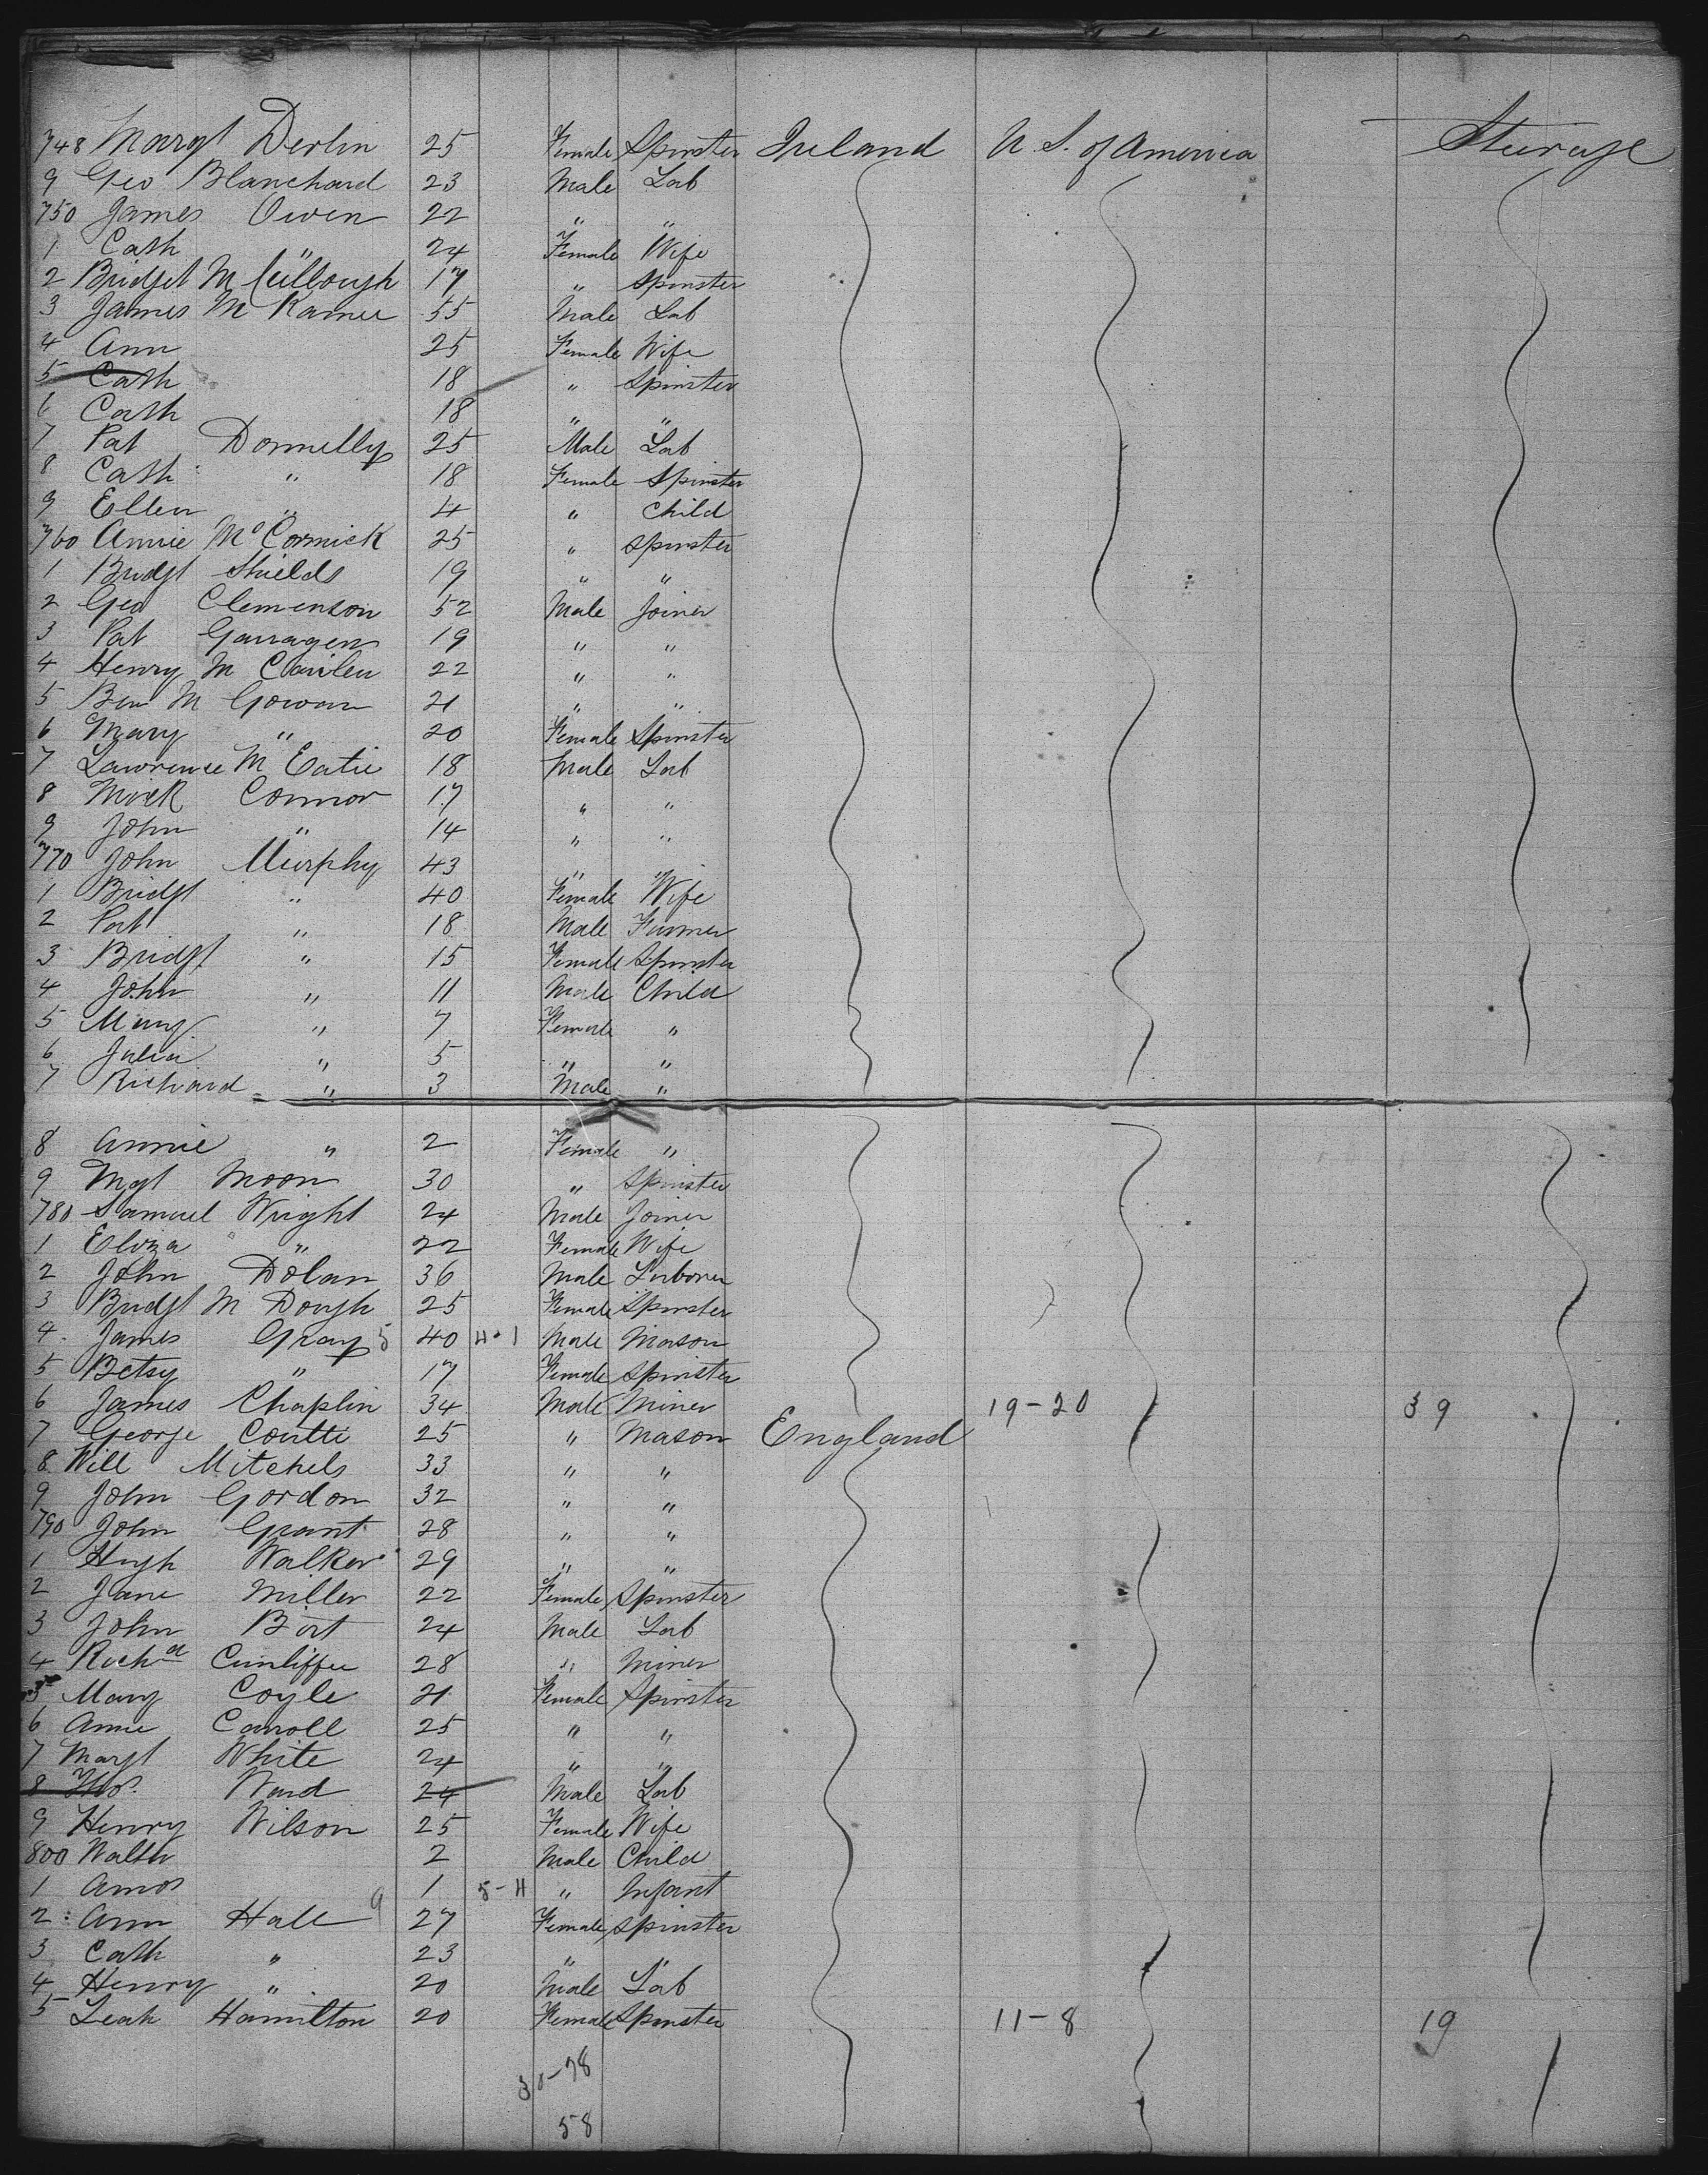 748 Margt Devlin 25 Female Spinster Ireland U S. of America Steerage
9 Geo Blanchard 23 Male Lab
750 James Owen 22 " "
1 Cath " 24 Female Wife
2 Bridget McCullough 17 " Spinster
3 James M Kamee 55 Male Lab
4 Ann 25 Female Wife
5 Cath 18 " Spinster
6 Cath 18 " "
7 Pat Donnelly 25 Male Lab
8 Cath " 18 Female Spinster
9 Ellen " 4 " Child
760 Annie McCormick 25 " Spinster
1 Bridgt Shields 19 " "
2 Geo Clemenson 52 Male Joiner
3 Pat Garragen 19 " "
4 Henry M 22 " "
5 Ben M Gowan 21 " "
6 Mary " 20 Female Spinster
7 Lawrence M Catie 18 Male Lab
8 Mick Connor 17 " "
9 John " 14 " "
770 John Murphy 43 " "
1 Bridgt " 40 Female Wife
2 Pat " 18 Male Farmer
3 Bridgt " 15 Female Spinster
4 John " 11 Male Child
5 Mary " 7 Female "
6 Julia " 5 " "
7 Richard " 3 Male "
8 Annie " 2 Female "
9 Mgt Moon 30 " Spinster
780 Samuel Wright 24 Male Joiner
1 Eliza " 22 Female Wife
2 John Dolan 36 Male Laborer
3 Bridgt M Dough 25 Female Spinster
4 James Gray 5 40 4-1 Male Mason
5 Betsy " 17 Female Spinster
6 James Chaplin 34 Male Miner 19-20 39
7 George Coutti 25 " Mason England
8 Will Mitchels 33 " "
9 John Gordon 32 " "
790 John Grant 28 " "
1 Hugh Walker 29 " "
2 Jane Miller 22 Female Spinster
3 John Bort 24 Male Lab
4 Richd Cunliffee 28 " Miner
5 Mary Coyle 21 Female Spinster
6 Anne Carroll 25 " "
7 Margt White 24 " "
8 Thos. Ward 24 Male Lab
9 Henry Wilson 25 Female Wife
800 Walter 2 Male Child
1 Amos 1 5-4 " Infant
2 Ann Hall 9 27 Female Spinster
3 Cath " 23 " "
4 Henry " 20 Male Lab
5 Leah Hamilton 20 Female Spinster 11-8 19
30-28
58